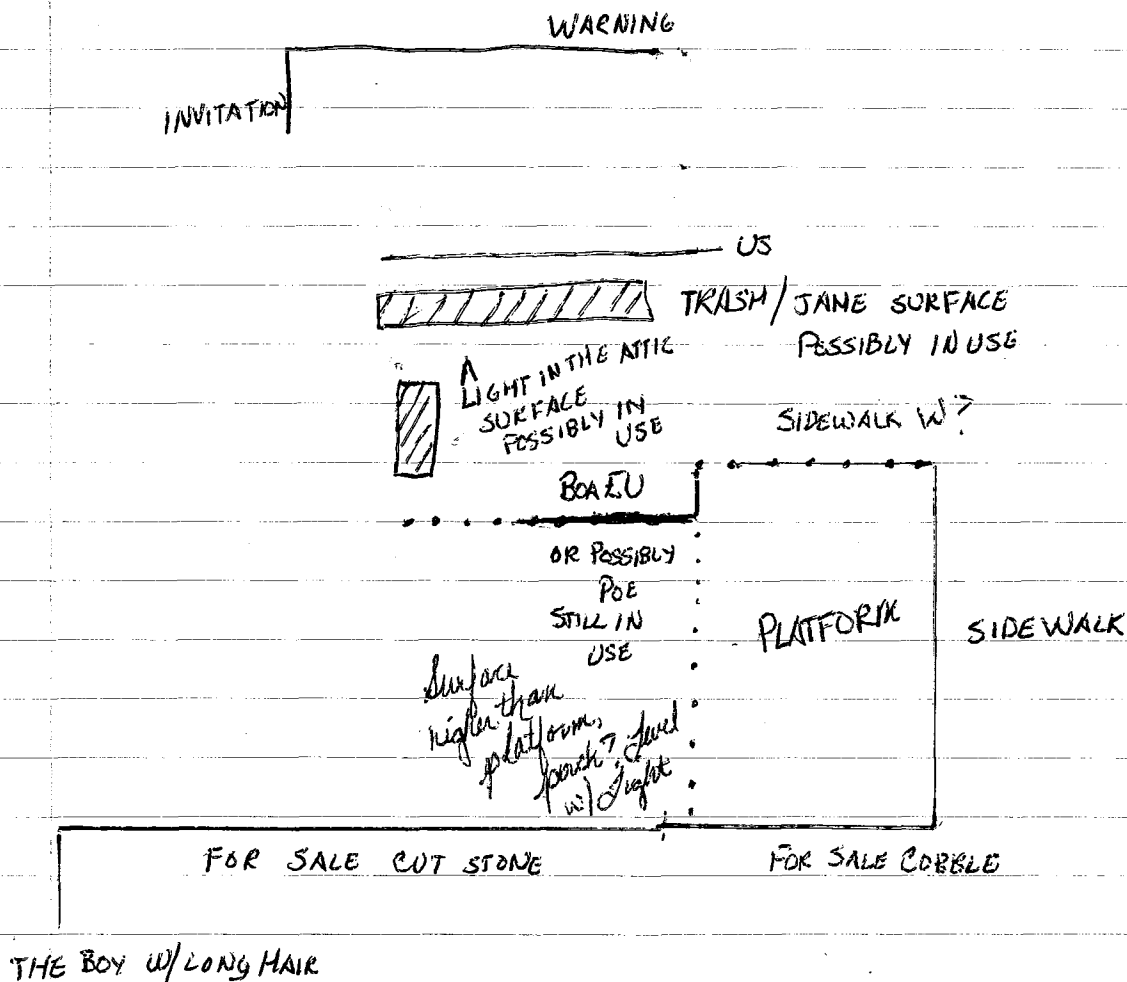 WARNING
INVITATION
US
TRASH/JANE SURFACE
POSSIBLY IN USE
LIGHT IN THE ATTIC
SURFACE
POSSIBLY IN
USE
SIDEWALK W?
BOA EU
OR POSSIBLY
POE
STILL IN
USE
PLATFORM
SIDEWALK
Surface
higher than
platform,
porch? Level
w/ Light
FOR SALE CUT STONE
FOR SALE COBBLE
THE BOY W/LONG HAIR